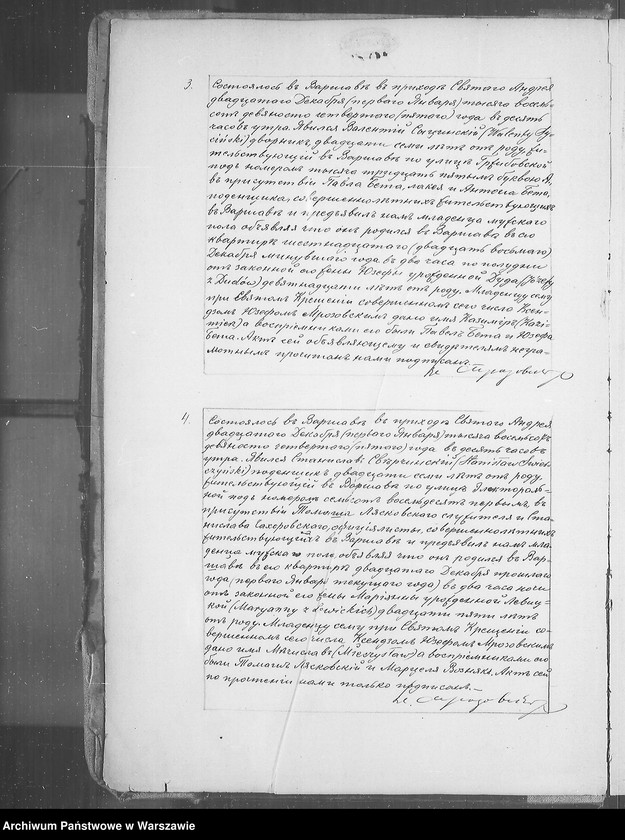 3.
Состоялось въ Варшавѣ въ приходѣ Святаго Андрея
двадцатаго Декабря (перваго Января) тысяча восемь-
сотъ девяносто четвертаго (пятаго) года въ десять
часовъ утра. Явился Валентій (Walenty
дворникъ, двадцати семи лѣтъ отъ роду, жи-
тельствующій въ Варшавѣ по улицѣ Гржибовской
подъ номеромъ тысяча тридцать пятымъ буквою А,
въ присутствіи Павла Бета, лакея и Антона Бета,
поденщика, совершеннолѣтнихъ жительствующихъ
въ Варшавѣ и предъявилъ намъ младенца мужскаго
пола объявляя что онъ родился въ Варшавѣ въ его
квартирѣ шестнадцатаго (двадцать восьмаго)
Декабря минувшаго года въ два часа по полудни
отъ законной его жены Юзефы урожденной Дуда (Józefy
z Dudów) девятнадцати лѣтъ отъ роду. Младенцу сему
при Святомъ Крещеніи совершенномъ сего числа Ксен-
дзомъ Юзефомъ Мрозовскимъ дано имя Казиміръ (Kazi-
mierz) а воспріемниками его были Павелъ Бета и Юзефа
Бета. Актъ сей объявляющему и свидѣтелямъ негра-
мотнымъ прочитанъ нами подписанъ.
4.
Состоялось въ Варшавѣ въ приходѣ Святаго Андрея
двадцатаго Декабря (перваго Января) тысяча восемьсотъ
девяносто четвертаго (пятаго) года, въ десять часовъ
утра. Явился Станиславъ Свѣрчинскій (Stanisław Swier-
czyński) поденщикъ двадцати семи лѣтъ отъ роду
жительствующій въ Варшавѣ по улицѣ Электораль-
ной подъ номеромъ семьсотъ восемьдесятъ первымъ, въ
присутствіи Томаша Лясковскаго служителя и Ста-
нислава Сахоровскаго, официалисты, совершеннолѣтнихъ
жительствующихъ въ Варшавѣ и предъявилъ намъ мла-
денца мужскаго пола, объявляя что онъ родился въ Вар-
шавѣ въ его квартирѣ двадцатаго Декабря прошлаго
года (перваго Января текущаго года) въ два часа ночи
отъ законной его жены Маріянны урожденной Левиц-
кой (Maryanny z Lewickich) двадцати пяти лѣтъ
отъ роду. Младенцу сему при Святомъ Крещеніи со-
вершенномъ сего числа Ксендзомъ Юзефомъ Мрозовскимъ
дано имя Мѣчиславъ (Mieczysław) а воспріемниками его
были Томашъ Лясковскій и Марцеля Возняк. Актъ сей
по прочтеніи нами только подписанъ.
Archiwum Państwowe w Warszawie